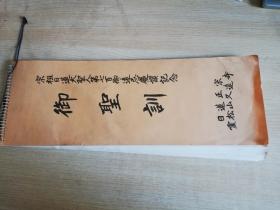 宗祖日蓮大聖人第七百御遠忌慶讃記念
御聖訓
日蓮正宗